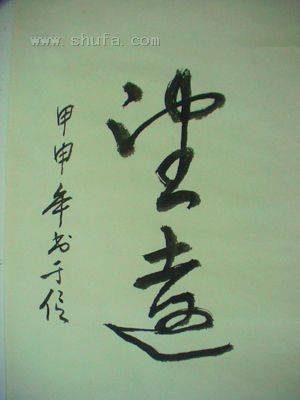 www.shufa.com
望遠
甲申年书于